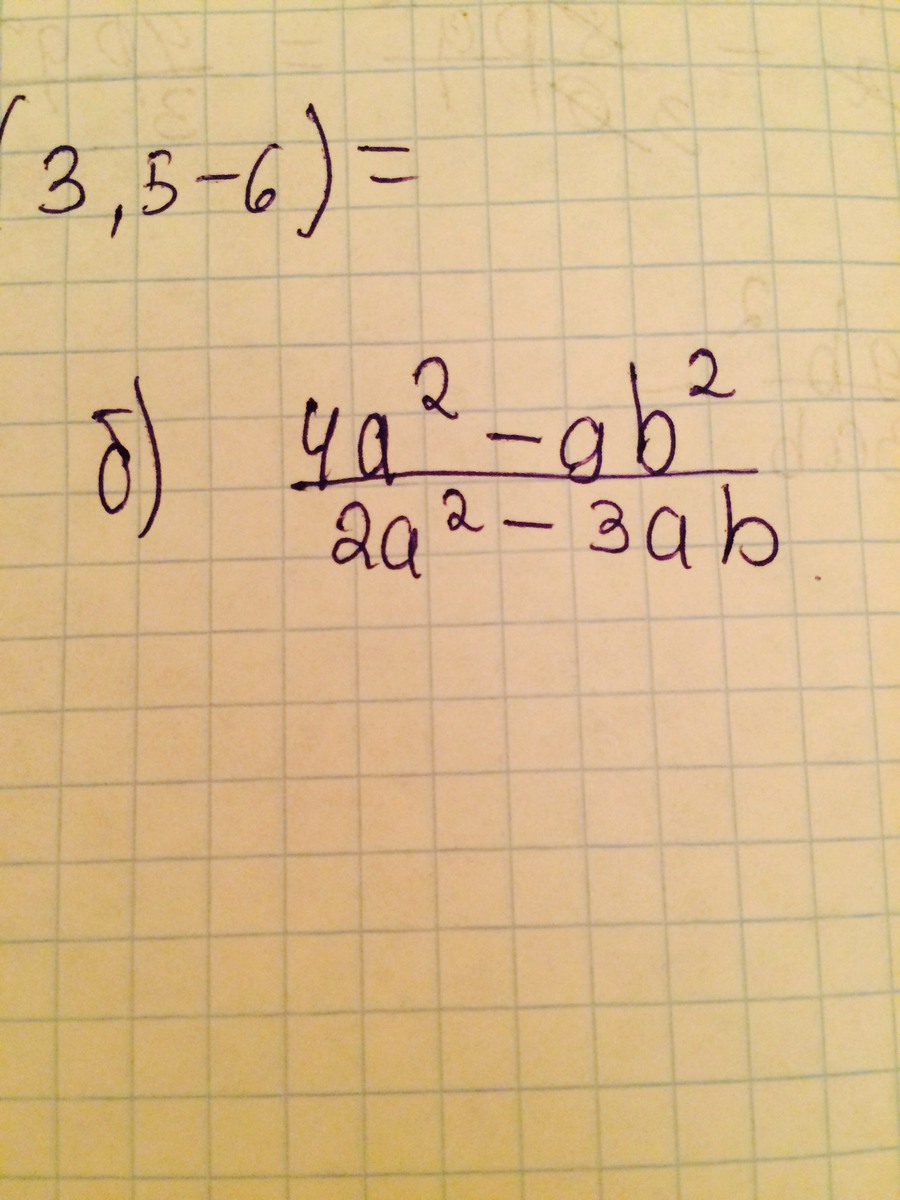 (3,5-6)=
б) (4a² - 9b²)/(2a² - 3ab)